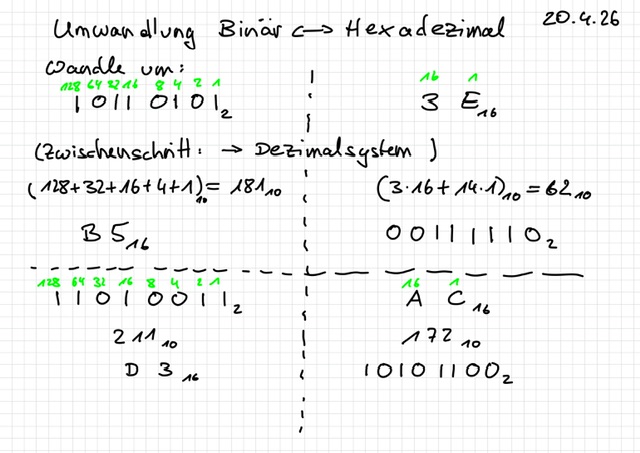 Umwandlung Binär ⟷ Hexadezimal 20.4.26
Wandle um:
128 64 32 16 8 4 2 1
1011 0101₂
16 1
3 E₁₆
(Zwischenschritt: → Dezimalsystem)
(128+32+16+4+1)₁₀ = 181₁₀
(3·16 + 14·1)₁₀ = 62₁₀
B 5₁₆
00111110₂
128 64 32 16 8 4 2 1
1 1 0 1 0 0 1 1₂
16 1
A C₁₆
211₁₀
172₁₀
D 3₁₆
10101100₂